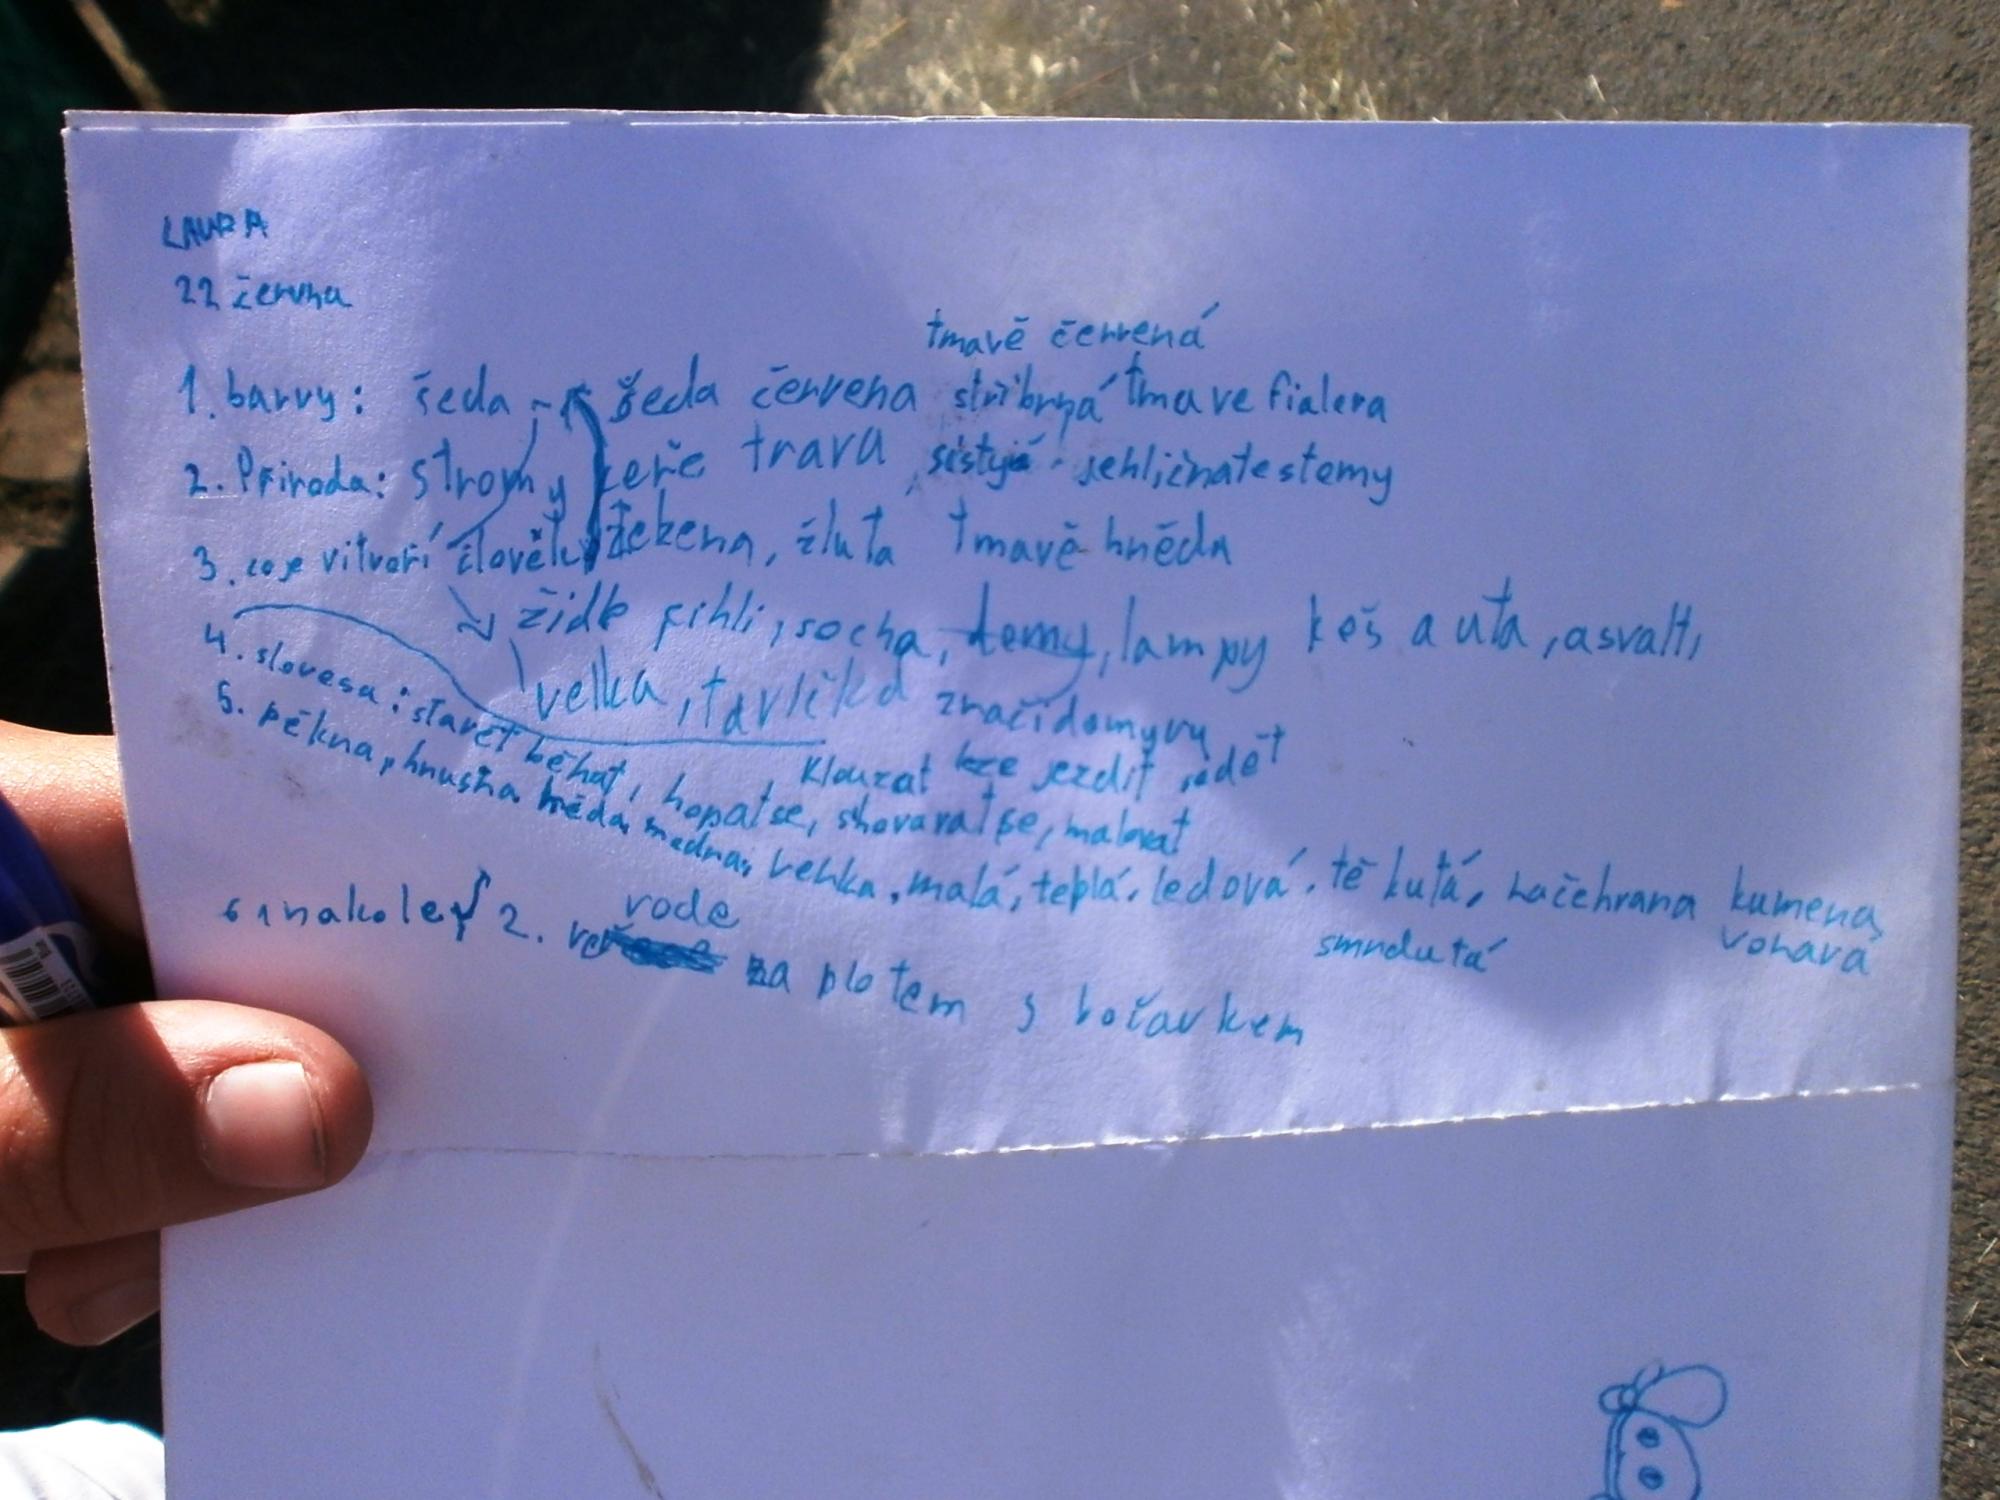 LAURA
22 června
tmavě červená
1. barvy: šeda šeda červena stříbrná tmave fialera
2. Příroda: stromy keře trava jehličnate stemy
3. co je vitvoří člověk žekena, žluta tmavě hněda
židle cihli, socha, domy, lampy koš auta, asvalt,
velka, tavlička značí domyvy
klouzat jezdit, sedět
4. slovesa: stavět běhat, hopat se, shovavat se, malovat
5. pěkna, hnusna, hněda, měďna, velka, malá, teplá, ledová, tě kutá, načehrana kamena,
smrdutá vonavá
6 1 nakolej 2. vode
za plotem s bočavkem